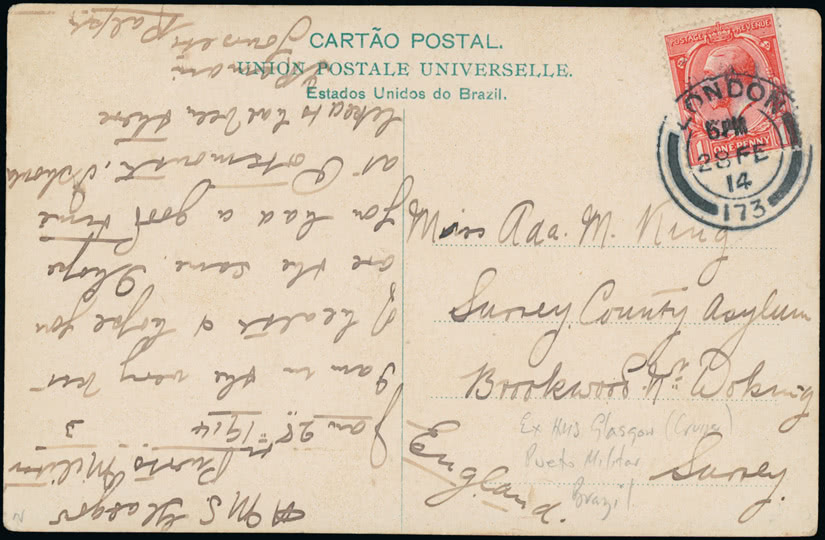 CARTÃO POSTAL.
UNION POSTALE UNIVERSELLE.
Estados Unidos do Brazil.
POSTAGE REVENUE
1 ONE PENNY 1
LONDON
6 PM
28 FE
14
173
Miss Ada. M. King
Surrey County Asylum
Brookwood. Nr. Woking
Surrey.
England.
Ex HMS Glasgow (Cruiser)
Puerto Militar
Brazil
H M S Glasgow
Puerto Militar
Jan 28th 1914 3
I am in the very best
of health & hope you
are the same. I hope
you had a good time
at Portsmouth, I should
liked to had been there
I Remain
Yours
Ralph